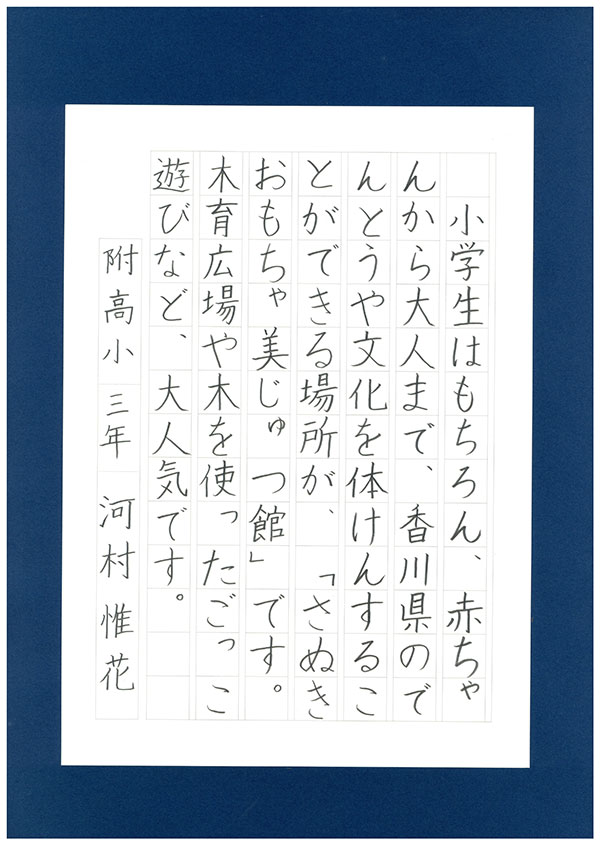 小学生はもちろん、赤ちゃ
んから大人まで、香川県ので
んとうや文化を体けんするこ
とができる場所が、「さぬき
おもちゃ美じゅつ館」です。
木育広場や木を使ったごっこ
遊びなど、大人気です。
附高小 三年 河村 惟花